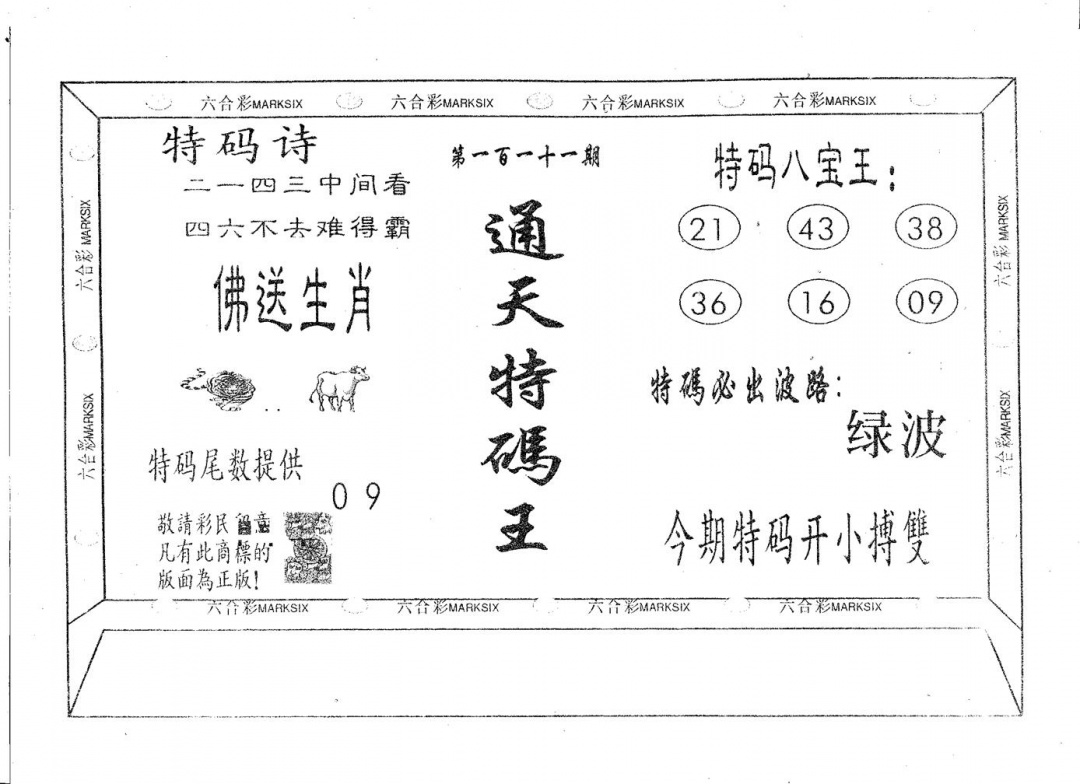 六合彩MARKSIX 六合彩MARKSIX 六合彩MARKSIX 六合彩MARKSIX
六合彩 MARKSIX
六合彩MARKSIX
特码诗
二一四三中间看
四六不去难得霸
佛送生肖
特码尾数提供
0 9
敬請彩民留意
凡有此商標的
版面為正版!
第一百一十一期
通天特碼王
特码八宝王:
21 43 38
36 16 09
特碼必出波路:
绿波
今期特码开小搏雙
六合彩 MARKSIX
六合彩MARKSIX
六合彩MARKSIX 六合彩MARKSIX 六合彩MARKSIX 六合彩MARKSIX